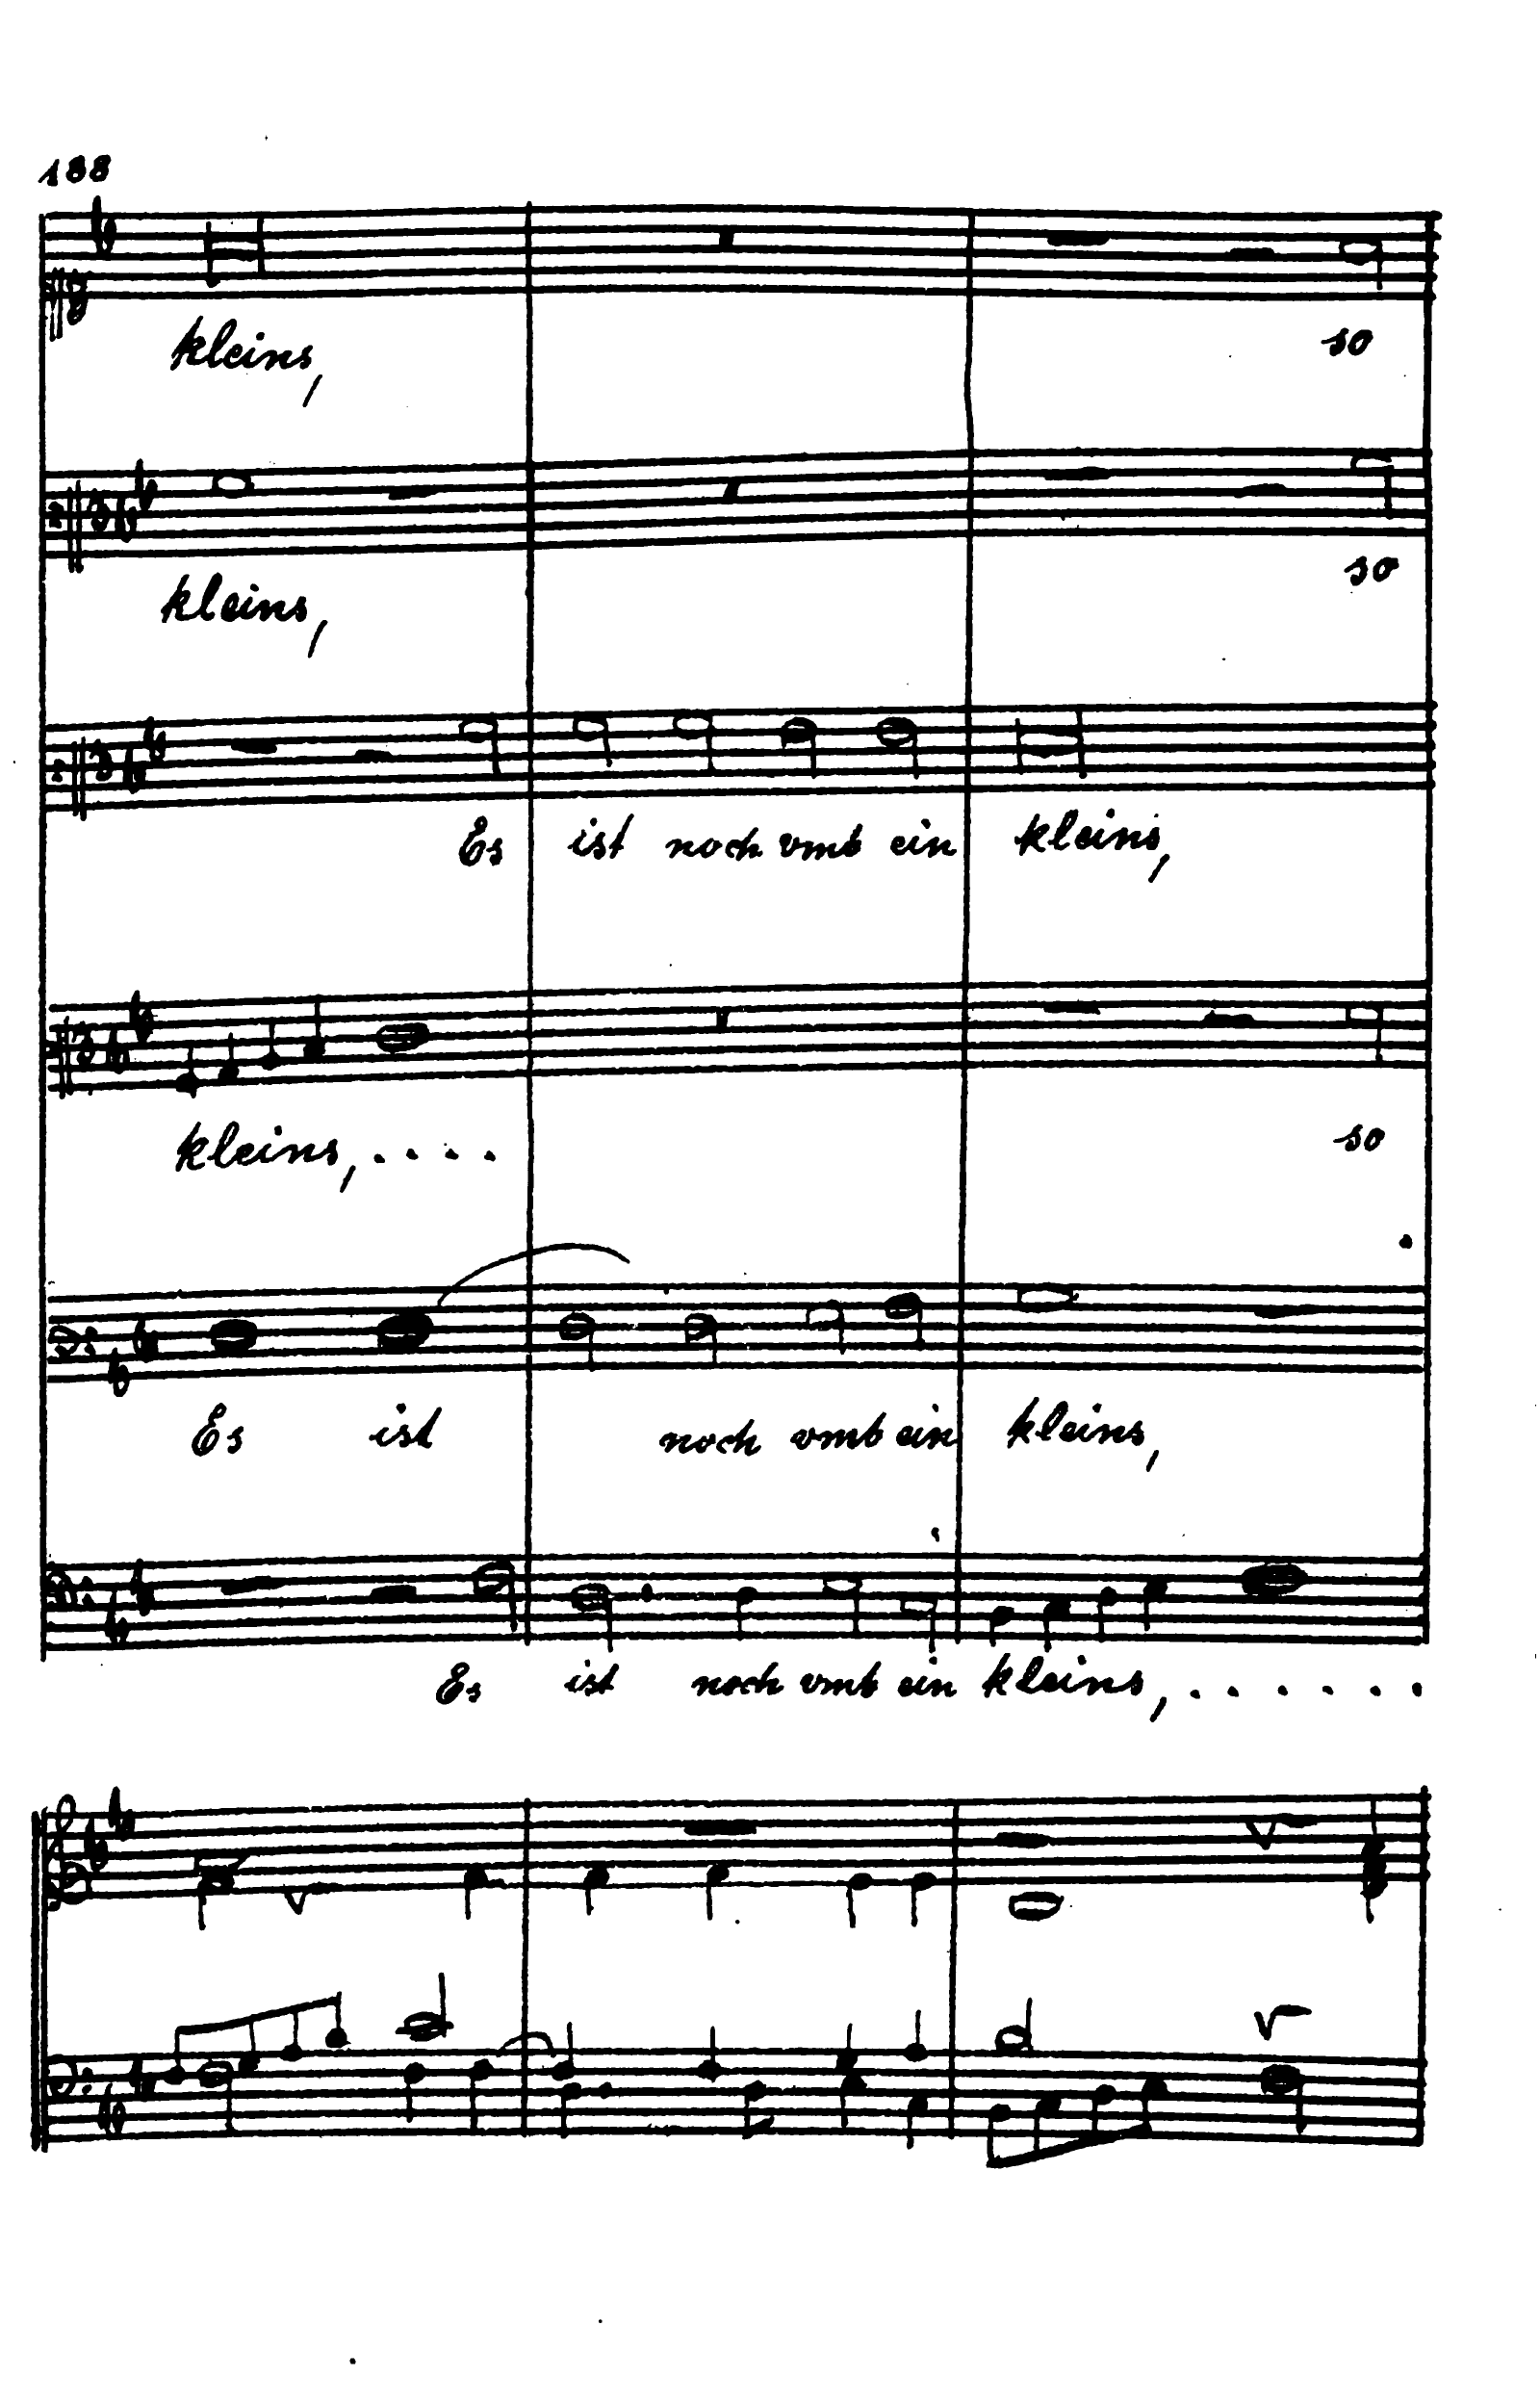 188
kleins, so
kleins, so
Es ist noch vmb ein kleins,
kleins, . . . . so
Es ist noch vmb ein kleins,
Es ist noch vmb ein kleins, . . . . . .